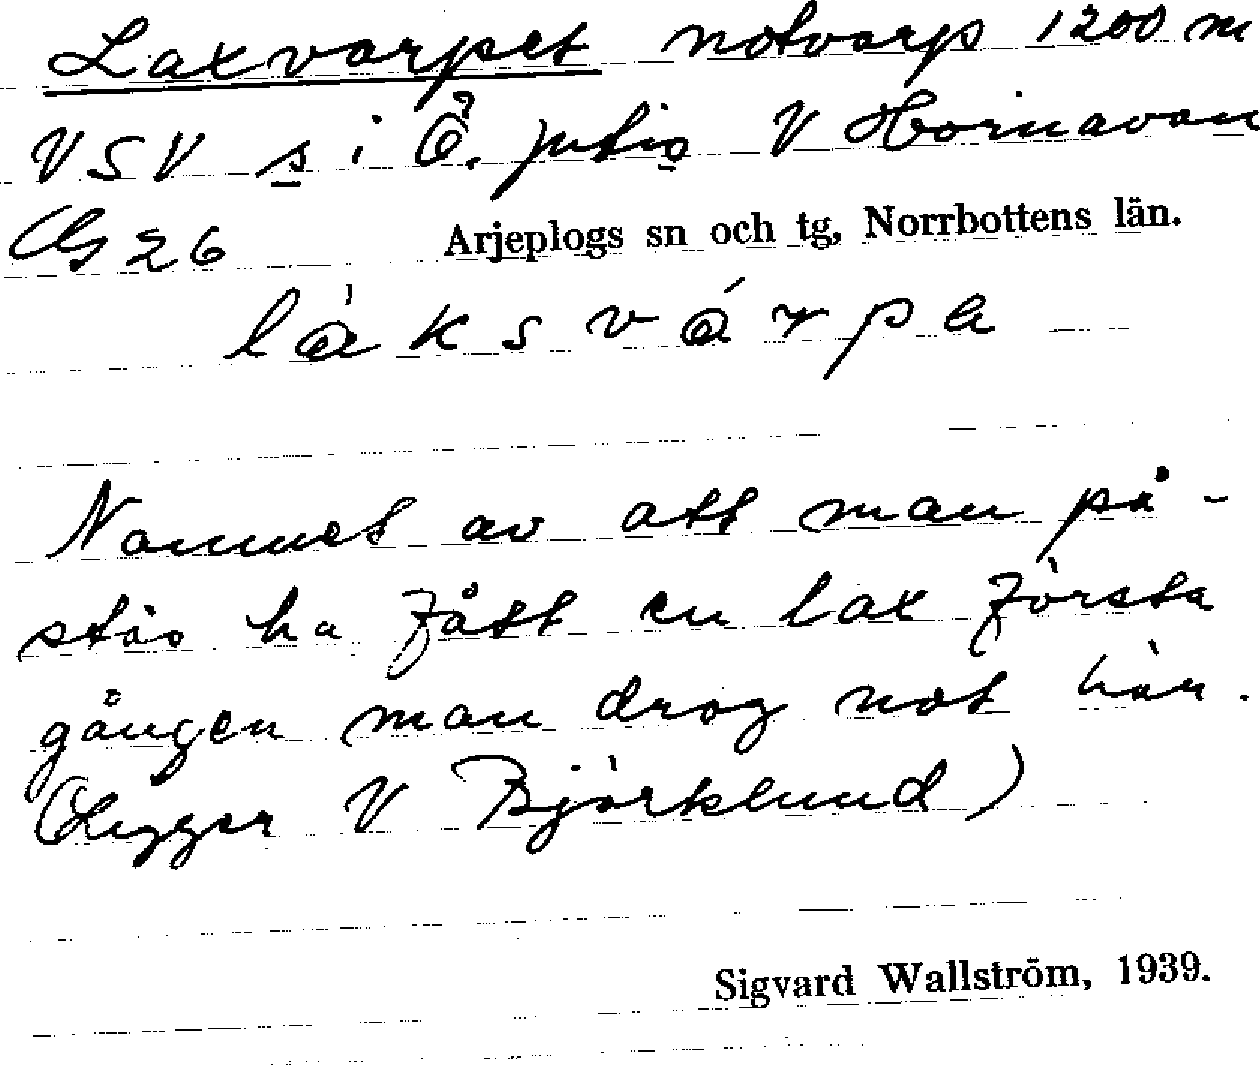 Laxvarpet notvarp 1200 m
VSV s i Ö. V Hornavan
26 Arjeplogs sn och tg, Norrbottens län.
Namnet av att man på-
stås ha fått en lax första
gången man drog not här.
(Ligger V Björklund)
Sigvard Wallström, 1939.